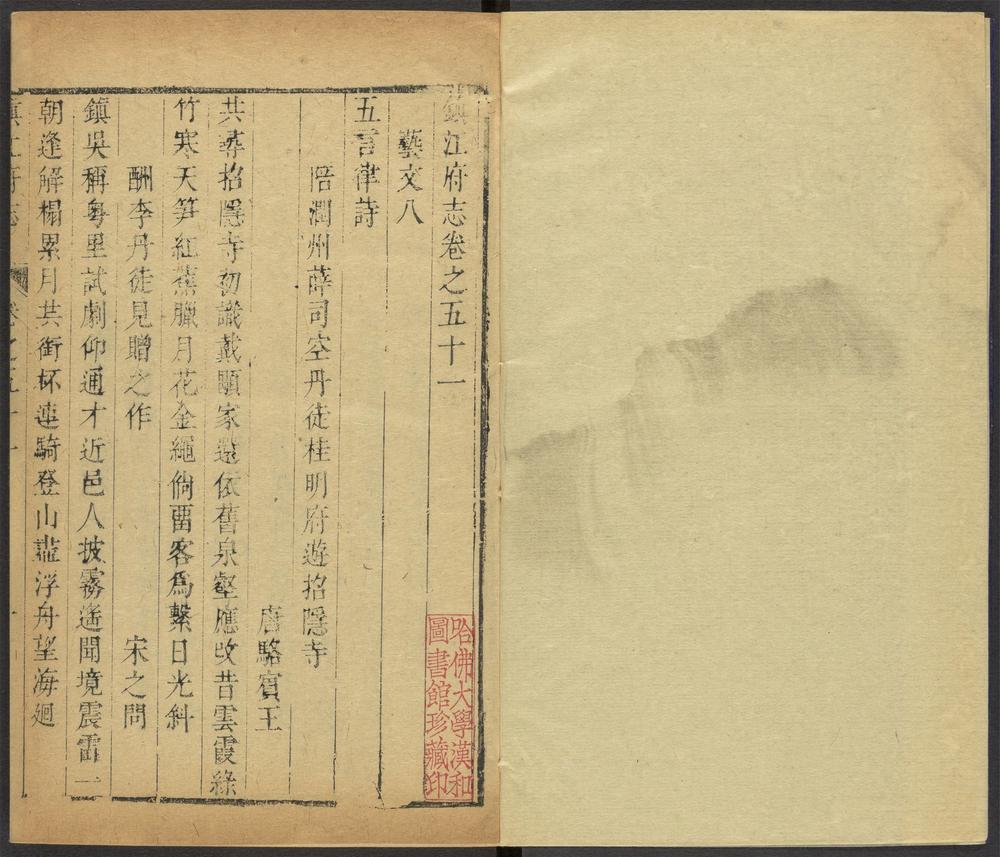 鎮江府志卷之五十一
藝文八
五言律詩
陪潤州薛司空丹徒桂明府遊招隱寺
唐駱賓王
共尋招隱寺初識戴顒家還依舊泉壑應改昔雲霞綠
竹寒天笋紅蕉臘月花金繩倘畱客爲繫日光斜
酬李丹徒見贈之作
宋之問
鎮吳稱粤里試劇仰通才近邑人披霧遙聞境震雷一
朝逢解榻累月共銜杯連騎登山盡浮舟望海廻
鎮江府志
卷之五十一
一
哈佛大學漢和
圖書館珍藏印